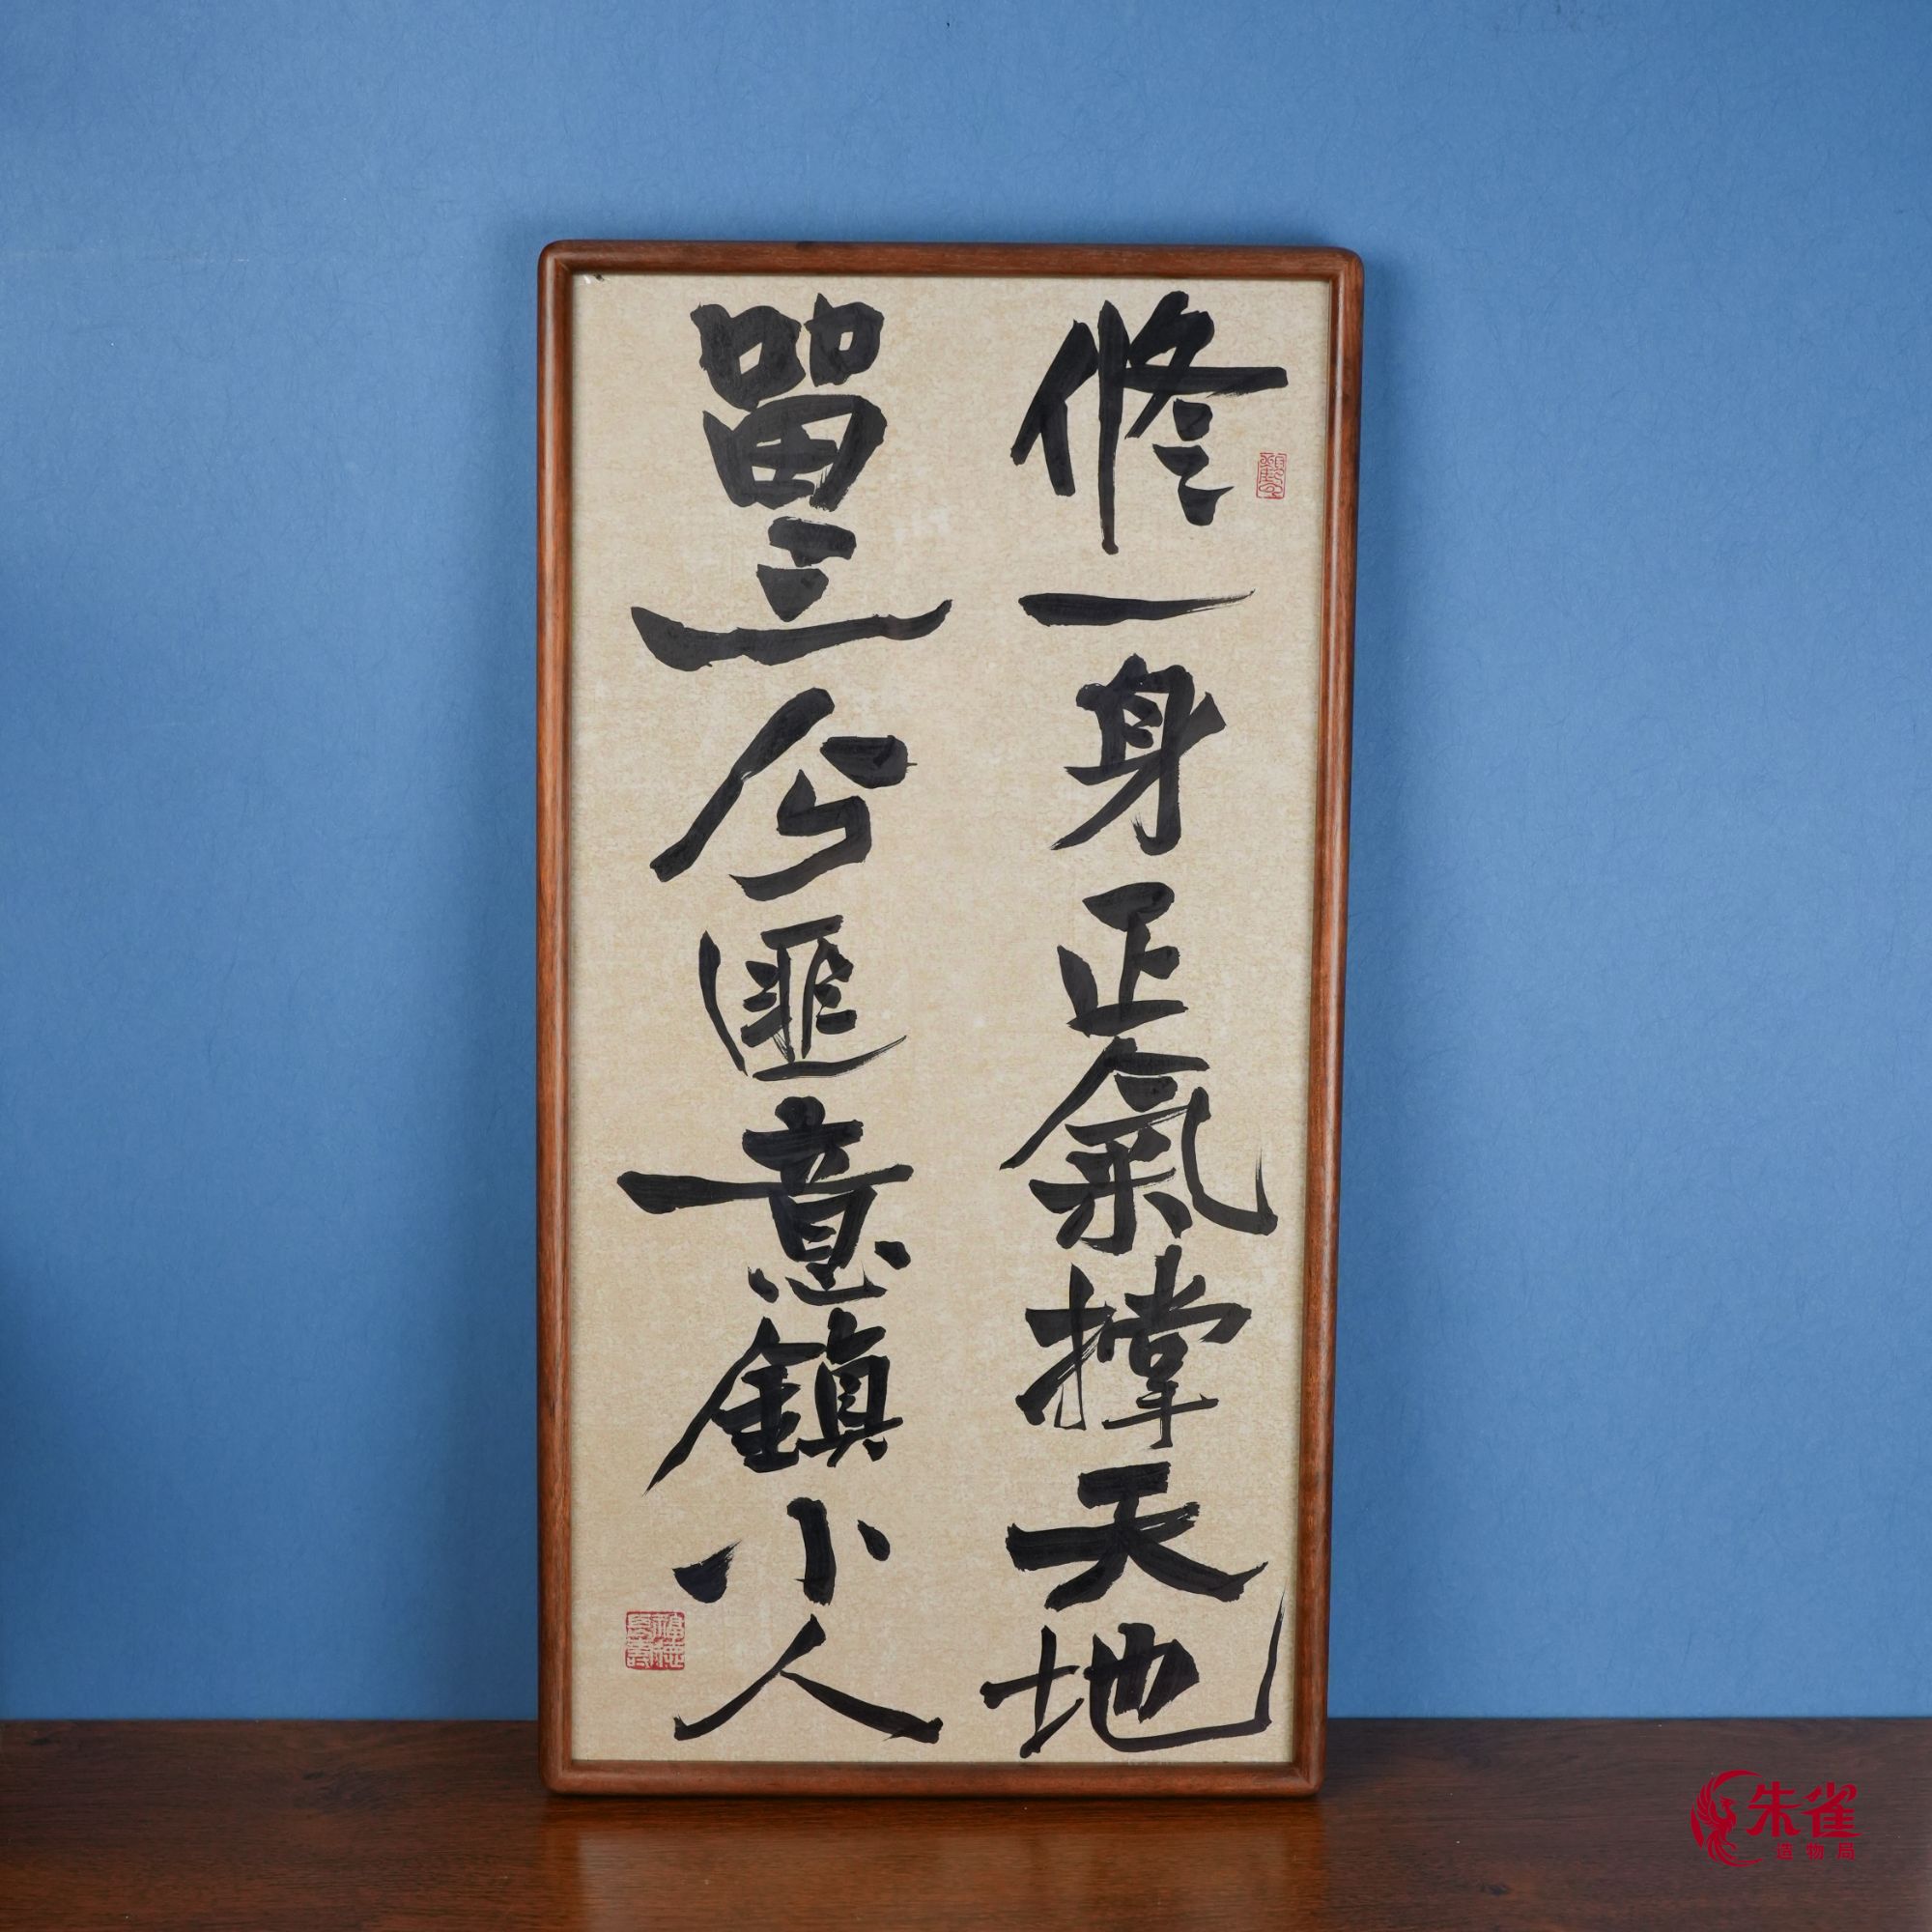 修一身正氣撑天地
留三分匪意鎮小人
朱雀
造物局